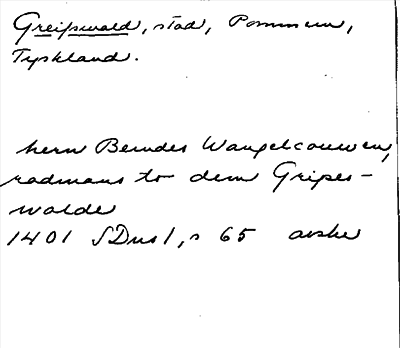 Greifswald, stad, Pommern,
Tyskland.
hern Berndes Wangelcouwen,
radmans to dem Gripes-
walde
1401 SDns 1, s 65 avskr